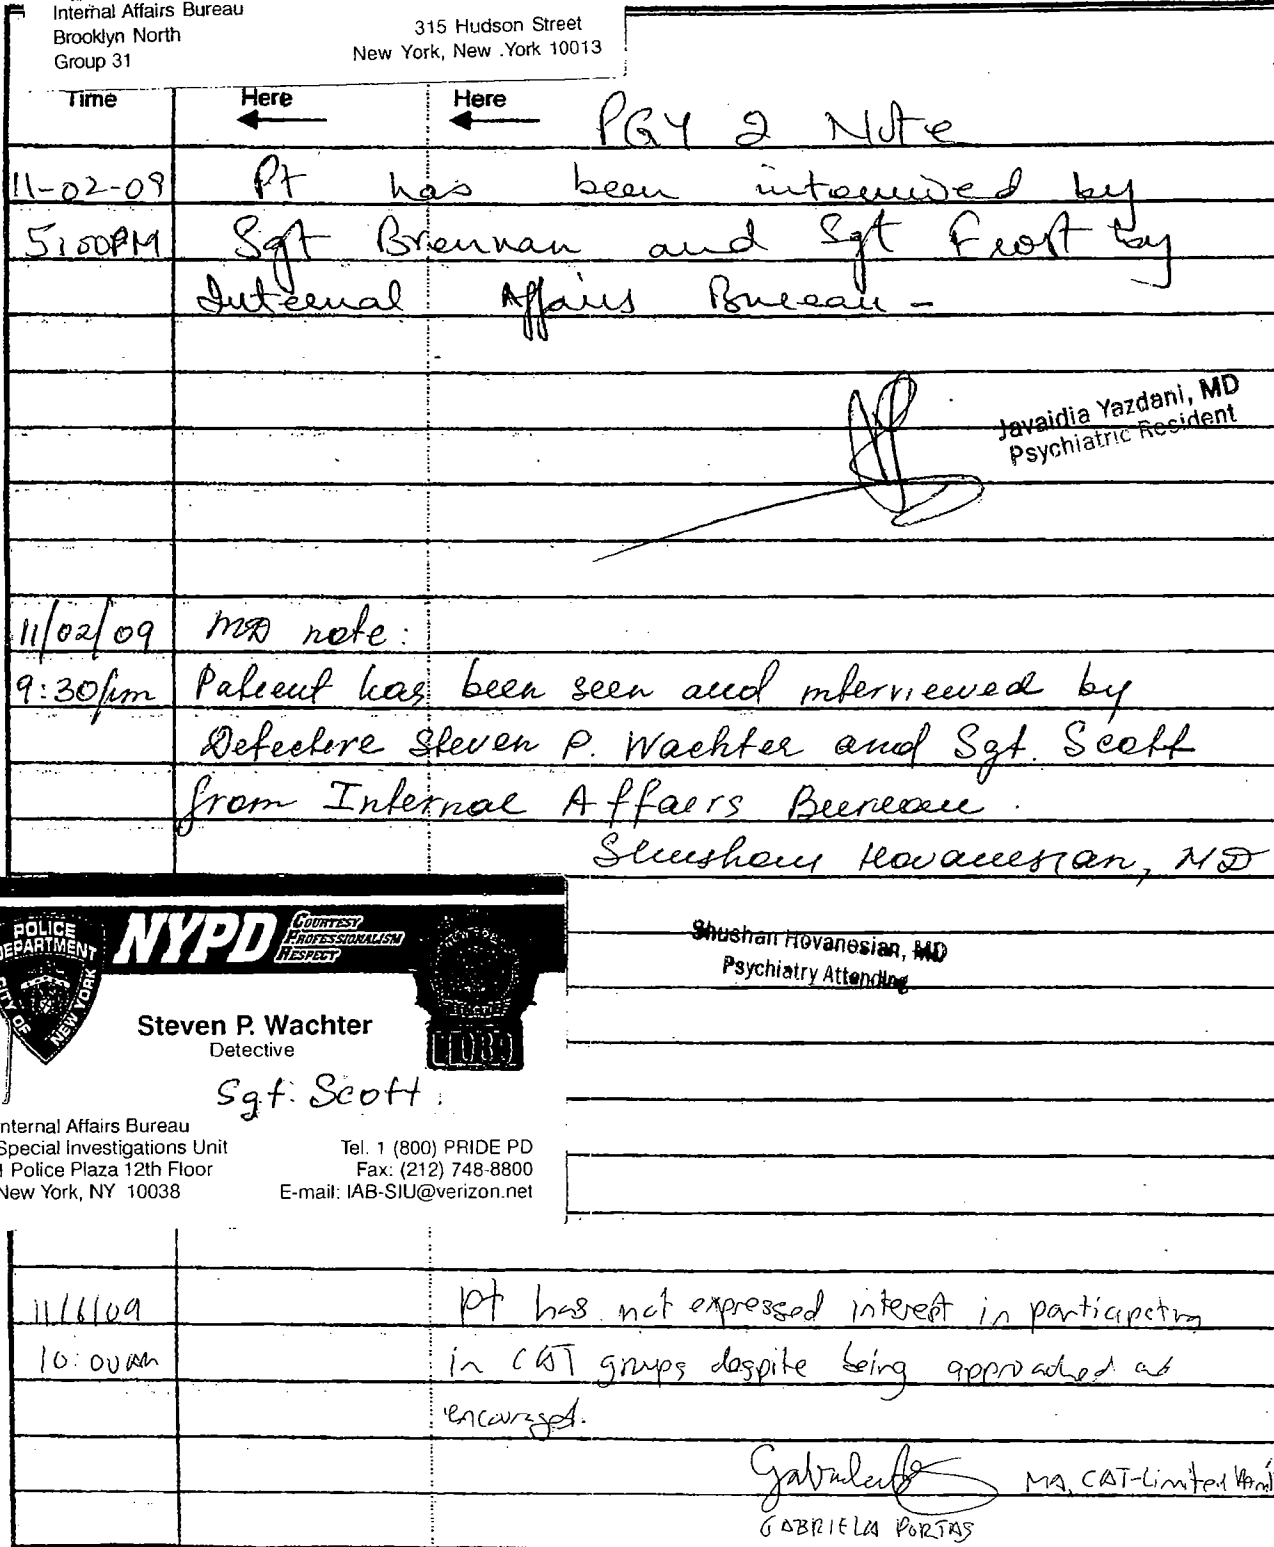 Internal Affairs Bureau
Brooklyn North
Group 31
315 Hudson Street
New York, New .York 10013
Time Here Here
PGY 2 Note
11-02-09 Pt has been interviewed by
5:00PM Sgt Brennan and Sgt Frost by
Internal Affairs Bureau -
Javaidia Yazdani, MD
Psychiatric Resident
11/02/09 MD note:
9:30pm Patient has been seen and interviewed by
Detective Steven P. Wachter and Sgt. Scott
from Internal Affairs Bureau.
Shushan Hovanesian, MD
Shushan Hovanesian, MD
Psychiatry Attending
POLICE
DEPARTMENT
CITY OF
NEW YORK
NYPD
COURTESY
PROFESSIONALISM
RESPECT
Steven P. Wachter
Detective
Sgt. Scott
nternal Affairs Bureau
Special Investigations Unit
1 Police Plaza 12th Floor
New York, NY 10038
Tel. 1 (800) PRIDE PD
Fax: (212) 748-8800
E-mail: IAB-SIU@verizon.net
11/6/09 pt has not expressed interest in participating
10:00am in CAT groups despite being approached and
encouraged.
MA, CAT-Limited
GABRIELA PORTAS